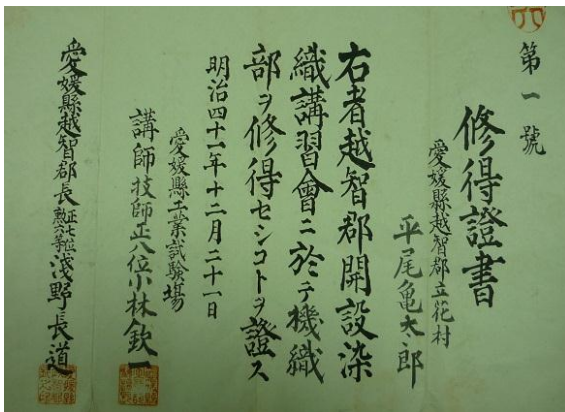 第一號
修得證書
愛媛縣越智郡立花村
平尾亀太郎
右者越智郡開設染
織講習會ニ於テ機織
部ヲ修得セシコトヲ證ス
明治四十一年十二月二十一日
愛媛縣工業試驗場
講師技師正八位小林欽一
愛媛縣越智郡長正七位勲六等浅野長道